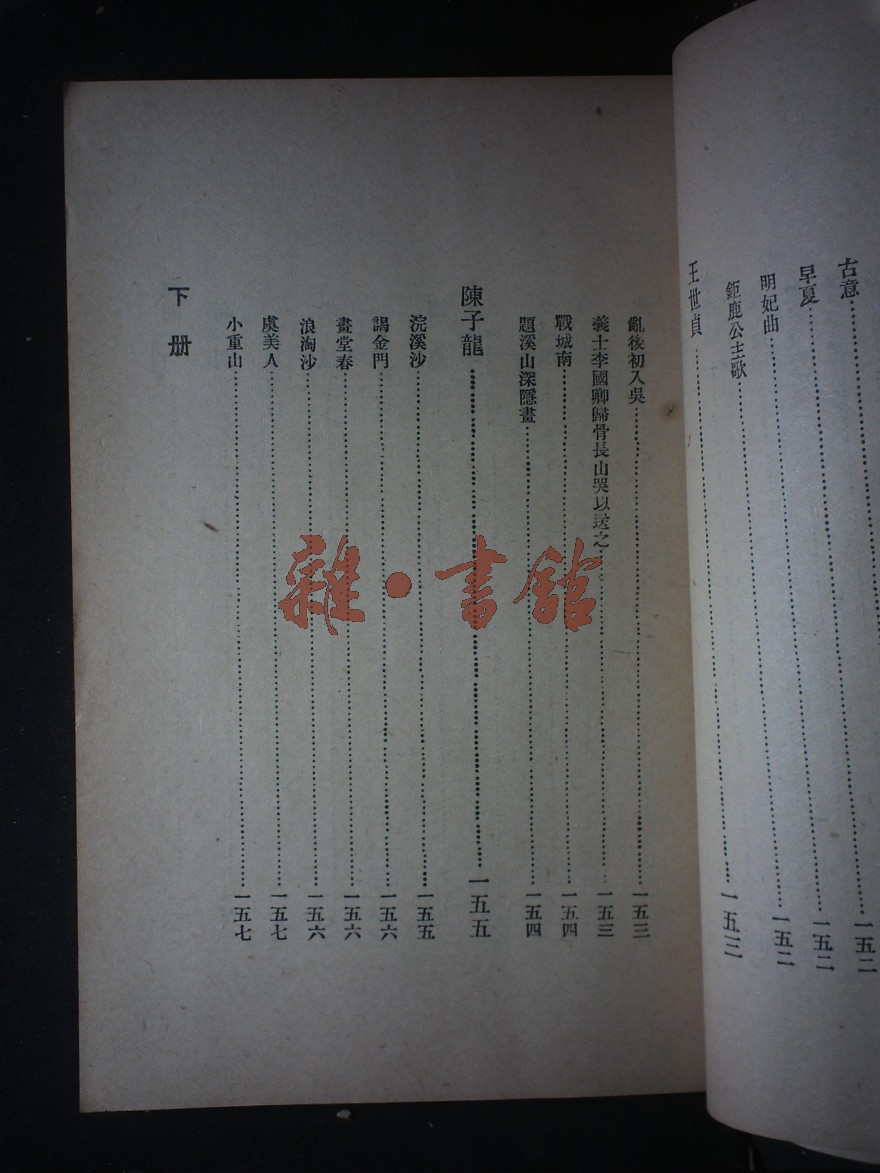 古意……一五二
早夏……一五二
明妃曲……一五二
鉅鹿公主歌……一五三
王世貞……
亂後初入吳……一五三
義士李國卿歸骨長山哭以送之……一五三
戰城南……一五四
題溪山深隱畫……一五四
陳子龍……一五五
浣溪沙……一五五
謁金門……一五六
畫堂春……一五六
浪淘沙……一五六
虞美人……一五七
小重山……一五七
下册
雜·書館